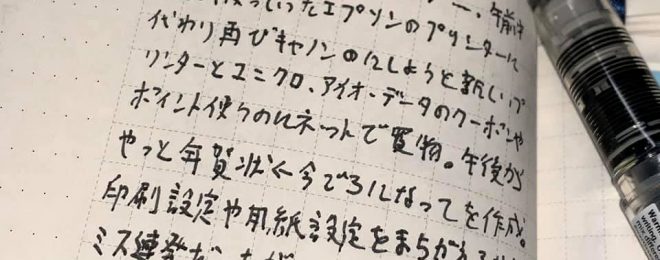 使っていたエプソンのプリンターに
代わり再びキヤノンのにしようと新しいプ
リンターとユニクロ、アイオ・データのクーポンや
ポイント使うのにネットで買物。午後から
やっと年賀状←今ごろになってを作成。
印刷設定や用紙設定をまちがえ
ミス連発だ